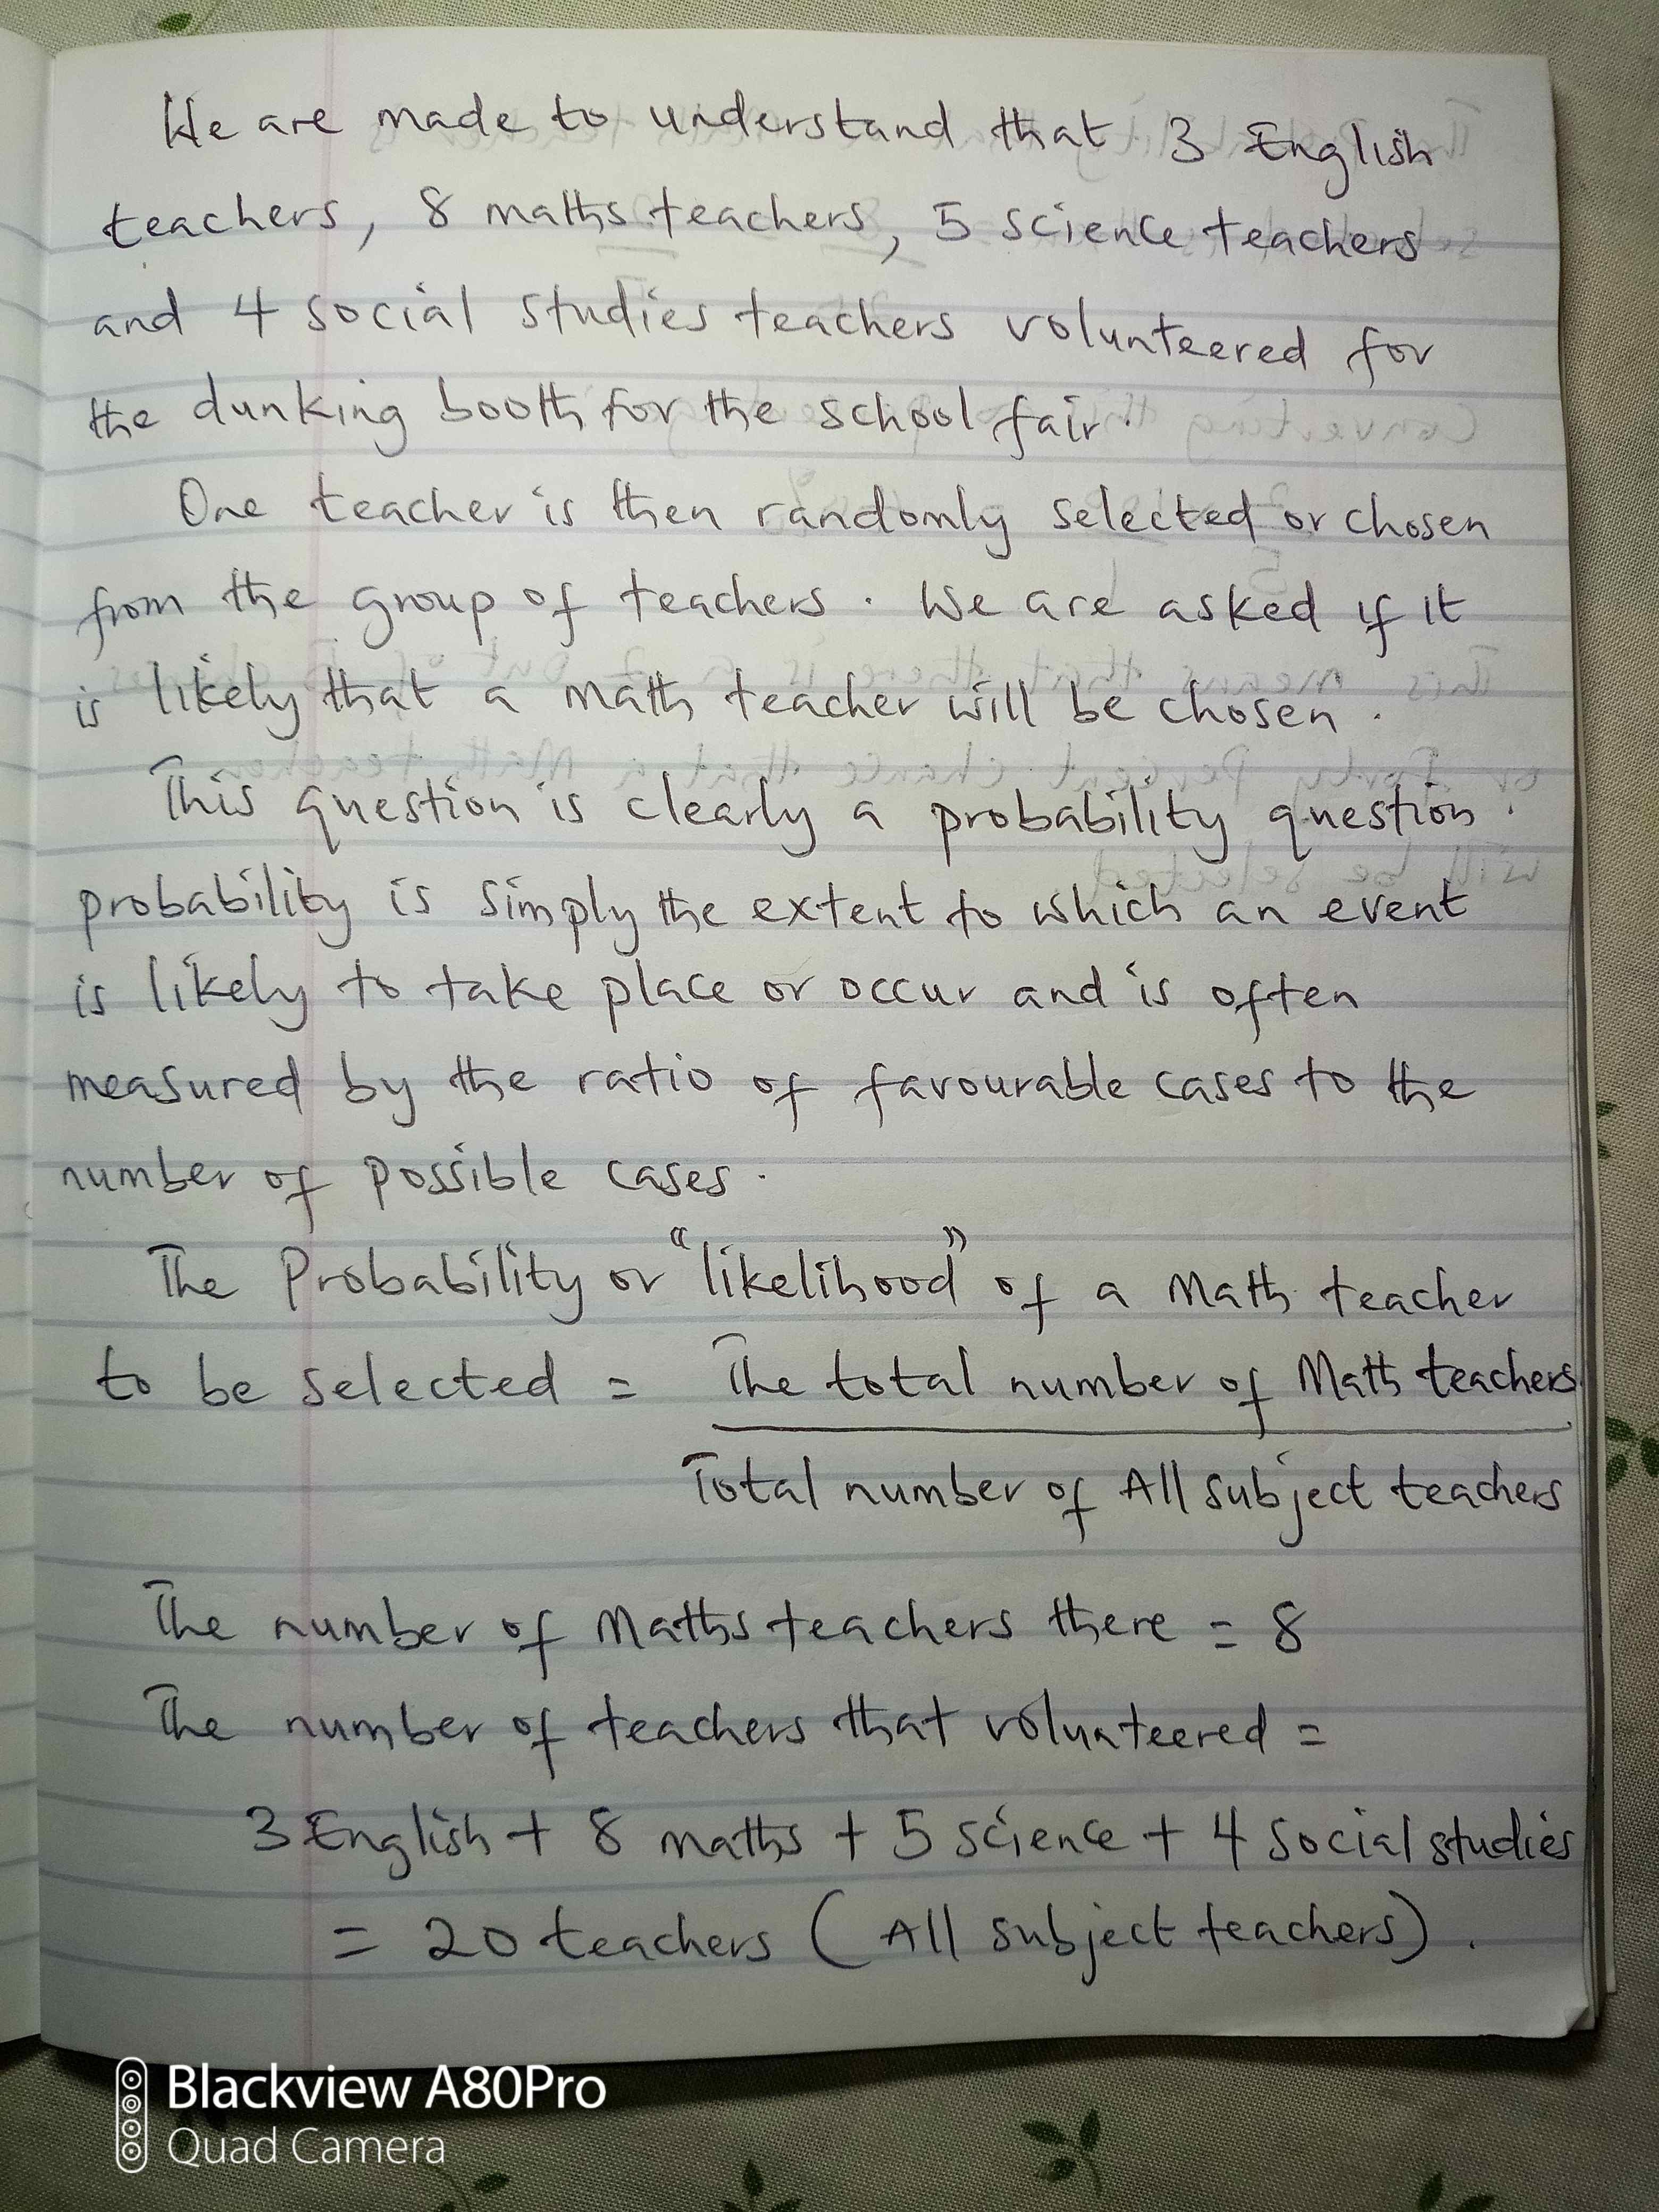 We are made to understand that 3 English
teachers, 8 maths teachers, 5 science teachers
and 4 social studies teachers volunteered for
the dunking booth for the school fair.
One teacher is then randomly selected or chosen
from the group of teachers. We are asked if it
is likely that a math teacher will be chosen.
This question is clearly a probability question.
probability is simply the extent to which an event
is likely to take place or occur and is often
measured by the ratio of favourable cases to the
number of possible cases.
The Probability or "likelihood" of a Math teacher
to be selected = The total number of Math teachers
Total number of All subject teachers
The number of Maths teachers there = 8
The number of teachers that volunteered =
3 English + 8 maths + 5 science + 4 social studies
= 20 teachers (All subject teachers).
Blackview A80Pro
Quad Camera